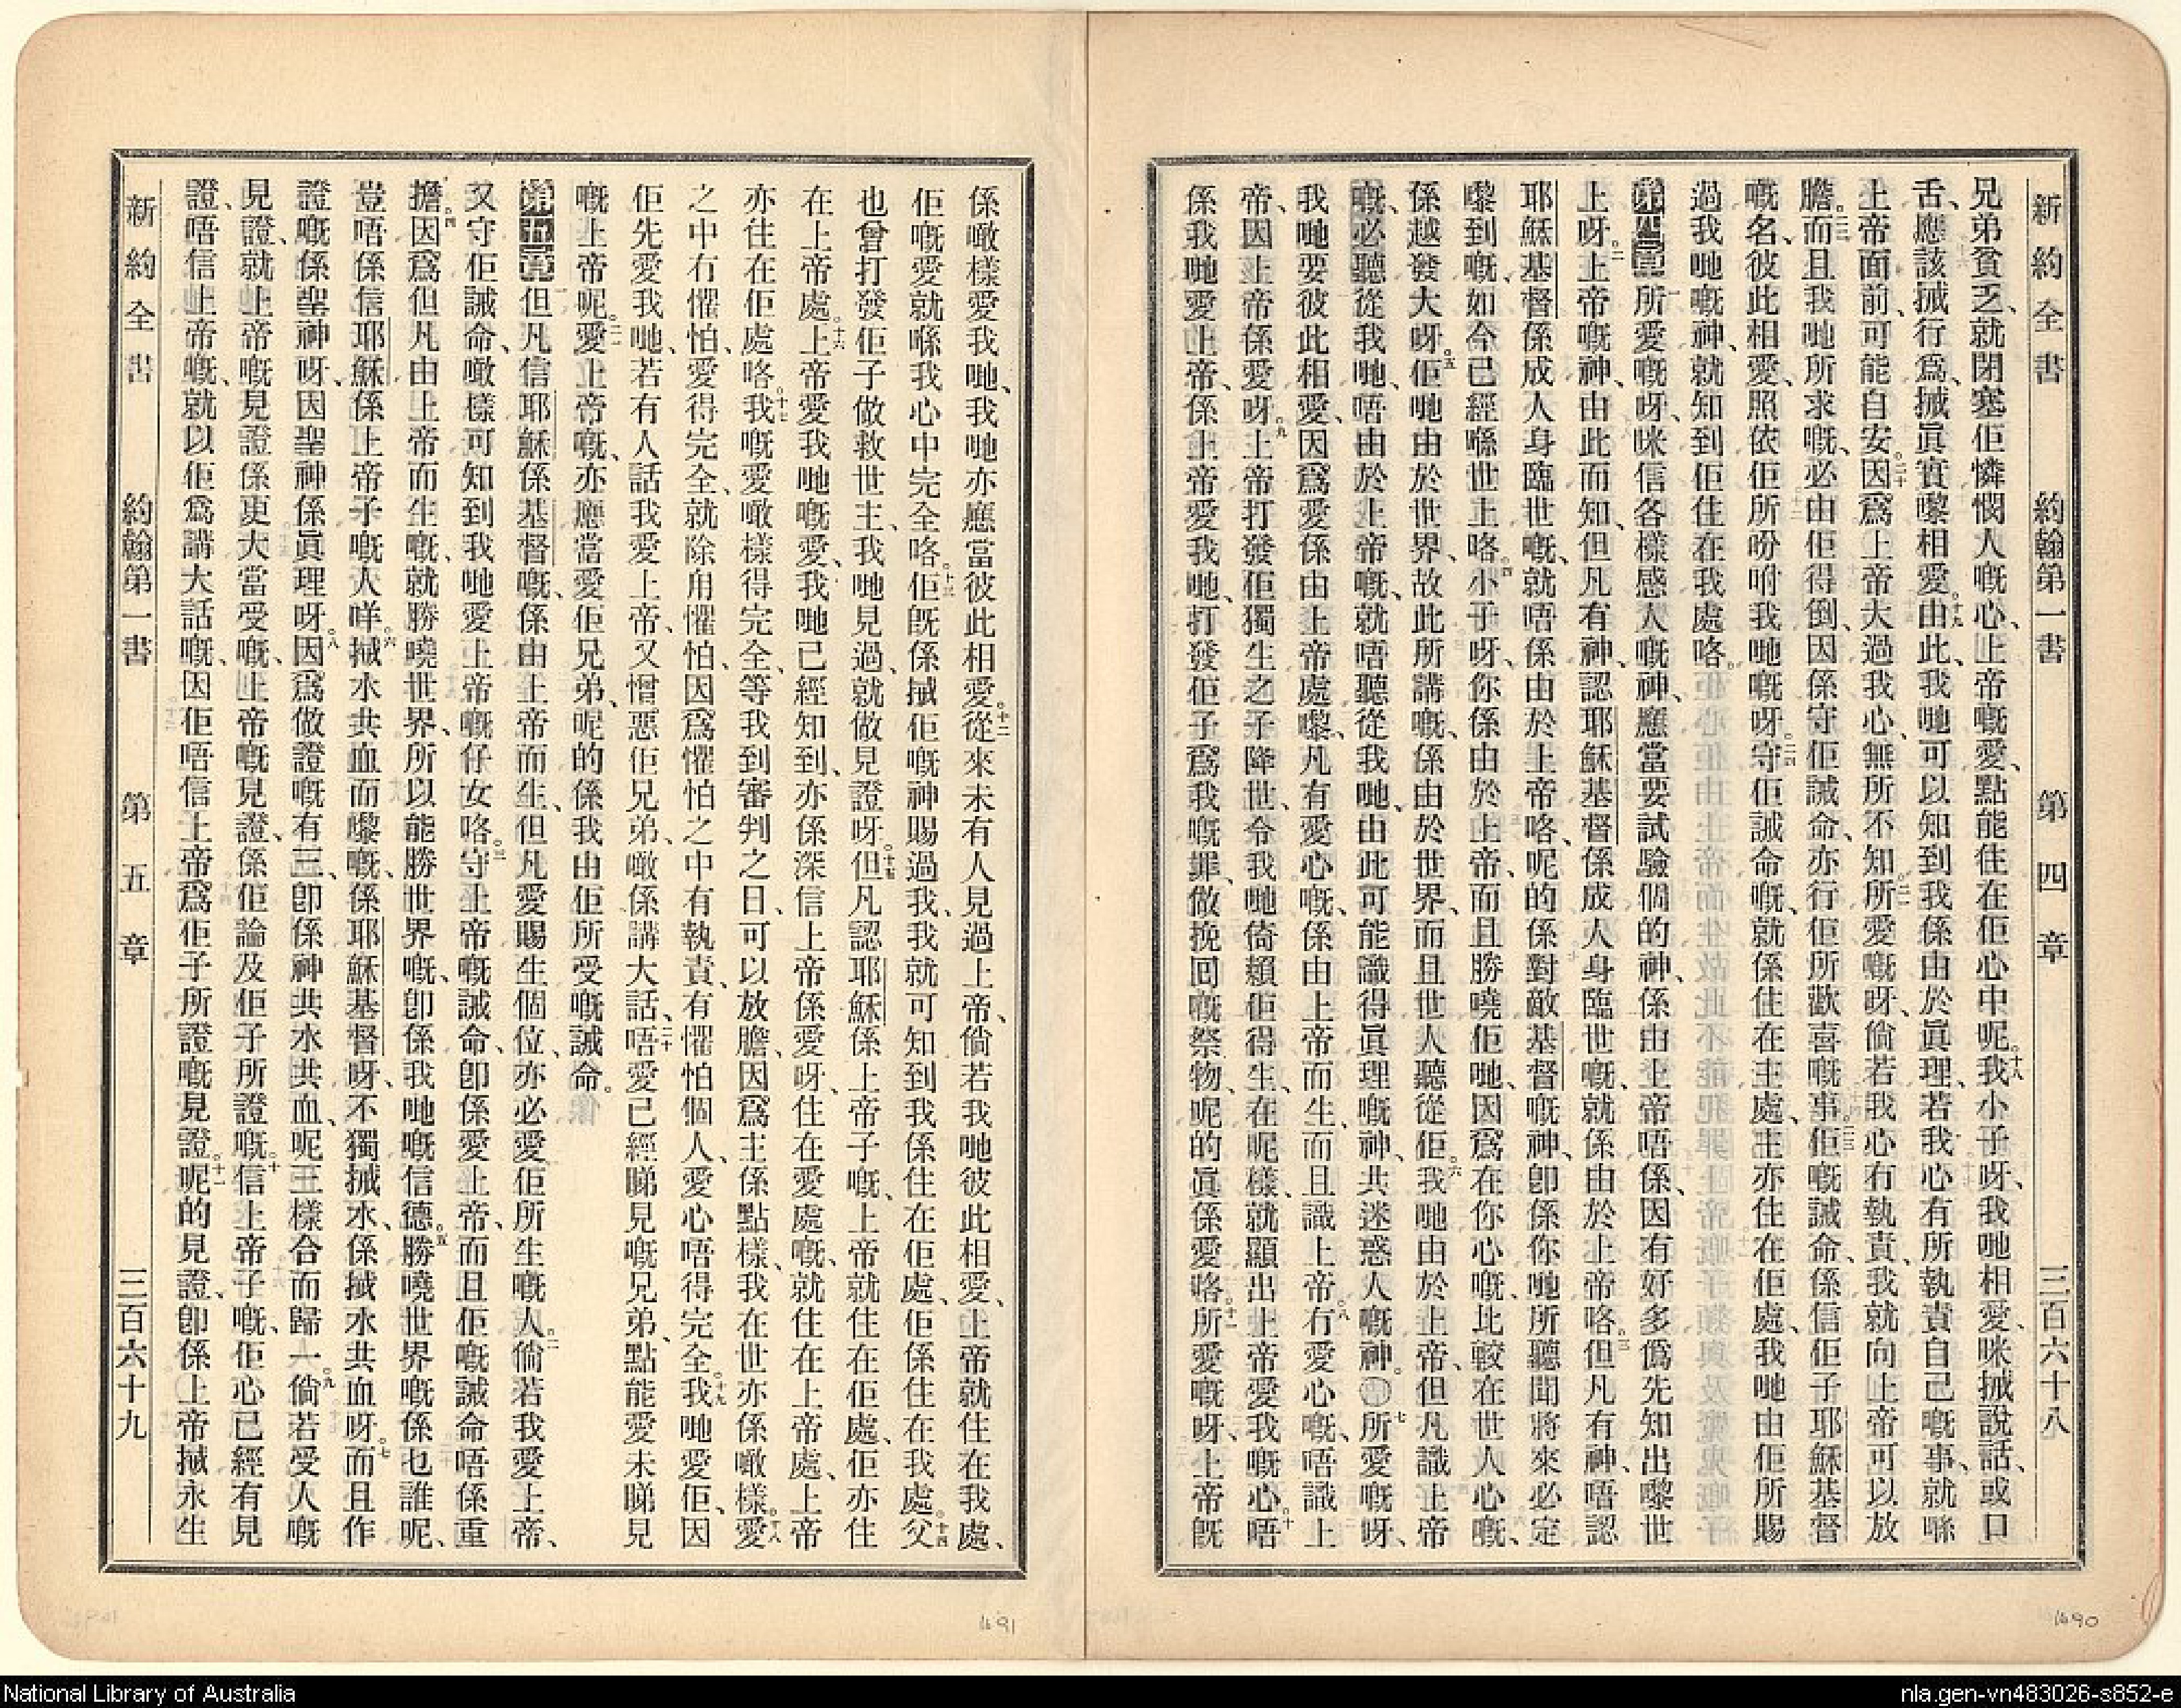 新約全書 約翰第一書 第四章 三百六十八
兄弟貧乏、就閉塞佢憐憫人嘅心、上帝嘅愛、點能住在佢心中呢。十八我小子呀、我哋相愛、咪搣說話、或口
舌、應該搣行爲、搣眞實嚟相愛。十九由此、我哋可以知到我係由於眞理、若我心有所執責自己嘅事、就喺
上帝面前、可能自安。二十因爲上帝大過我心、無所不知。二一所愛嘅呀、倘若我心冇執責、我就向上帝可以放
膽。二二而且我哋所求嘅、必由佢得倒、因係守佢誡命、亦行佢所歡喜嘅事。二三佢嘅誡命、係信佢子耶穌基督
嘅名、彼此相愛、照依佢所吩咐我哋嘅呀。二四守佢誡命嘅、就係住在主處、主亦住在佢處、我哋由佢所賜
過我哋嘅神、就知到佢住在我處咯。
第四章 一所愛嘅呀、咪信各樣感人嘅神、應當要試驗個的神、係由上帝唔係、因有好多僞先知出嚟世
上呀。二上帝嘅神、由此而知、但凡有神、認耶穌基督係成人身臨世嘅、就係由於上帝咯。三但凡有神、唔認
耶穌基督係成人身臨世嘅、就唔係由於上帝咯、呢的係對敵基督嘅神、卽係你哋所聽聞將來必定
嚟到嘅、如今已經喺世上咯。四小子呀、你係由於上帝、而且勝嘵佢哋、因爲在你心嘅、比較在世人心嘅、
係越發大呀。五佢哋由於世界、故此所講嘅、係由於世界、而且世人聽從佢。六我哋由於上帝、但凡識上帝
嘅、必聽從我哋、唔由於上帝嘅、就唔聽從我哋、由此可能識得眞理嘅神、共迷惑人嘅神。○七所愛嘅呀、
我哋要彼此相愛、因爲愛係由上帝處嚟、凡有愛心嘅、係由上帝而生、而且識上帝。八冇愛心嘅、唔識上
帝、因上帝係愛呀。九上帝打發佢獨生之子降世、令我哋倚賴佢得生、在呢樣、就顯出上帝愛我嘅心。十唔
係我哋愛上帝、係上帝愛我哋、打發佢子爲我嘅罪、做挽回嘅祭物、呢的眞係愛咯。十一所愛嘅呀、上帝旣
係噉樣愛我哋、我哋亦應當彼此相愛。十二從來未有人見過上帝、倘若我哋彼此相愛、上帝就住在我處、
佢嘅愛就喺我心中完全咯。十三佢旣係搣佢嘅神賜過我、我就可知到我係住在佢處、佢係住在我處。十四父
也曾打發佢子做救世主、我哋見過、就做見證呀。十五但凡認耶穌係上帝子嘅、上帝就住在佢處、佢亦住
在上帝處。十六上帝愛我哋嘅愛、我哋已經知到、亦係深信上帝係愛呀、住在愛處嘅、就住在上帝處、上帝
亦住在佢處咯。十七我嘅愛噉樣得完全、等我到審判之日、可以放膽、因爲主係點樣、我在世亦係噉樣。十八愛
之中冇懼怕、愛得完全、就除用懼怕、因爲懼怕之中有執責、有懼怕個人、愛心唔得完全。十九我哋愛佢、因
佢先愛我哋、若有人話我愛上帝、又憎惡佢兄弟、噉係講大話、二十唔愛已經睇見嘅兄弟、點能愛未睇見
嘅上帝呢。二一愛上帝嘅、亦應當愛佢兄弟、呢的係我由佢所受嘅誡命。
第五章 一但凡信耶穌係基督嘅、係由上帝而生、但凡愛賜生個位、亦必愛佢所生嘅人。二倘若我愛上帝、
又守佢誡命、噉樣可知到我哋愛上帝嘅仔女咯。三守上帝嘅誡命、卽係愛上帝、而且佢嘅誡命唔係重
擔。四因爲但凡由上帝而生嘅、就勝嘵世界、所以能勝世界嘅、卽係我哋嘅信德。五勝嘵世界嘅係乜誰呢、
豈唔係信耶穌係上帝子嘅人咩。六搣水共血而嚟嘅、係耶穌基督呀、不獨搣水、係搣水共血呀。七而且作
證嘅係聖神呀、因聖神係眞理呀。八因爲做證嘅有三、卽係神共水共血、呢三樣合而歸一。九倘若受人嘅
見證、就上帝嘅見證係更大當受嘅、上帝嘅見證、係佢論及佢子所證嘅。十信上帝子嘅、佢心已經有見
證、唔信上帝嘅、就以佢爲講大話嘅、因佢唔信上帝爲佢子所證嘅見證。十一呢的見證、卽係上帝搣永生
新約全書 約翰第一書 第五章 三百六十九
1690
1691
National Library of Australia
nla.gen-vn483026-s852-e